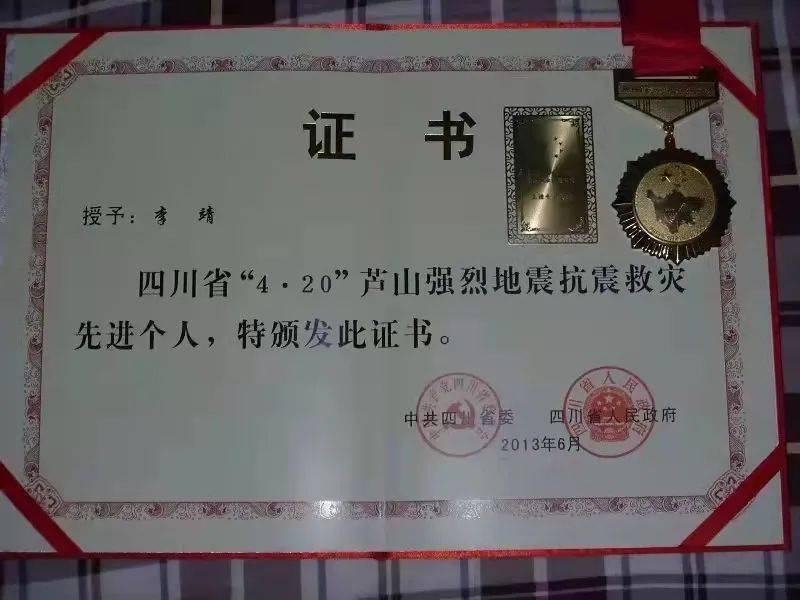 证书
授予：李 靖
四川省“4·20”芦山强烈地震抗震救灾
先进个人，特颁发此证书。
中共四川省委 四川省人民政府
2013年6月
四川省人民政府